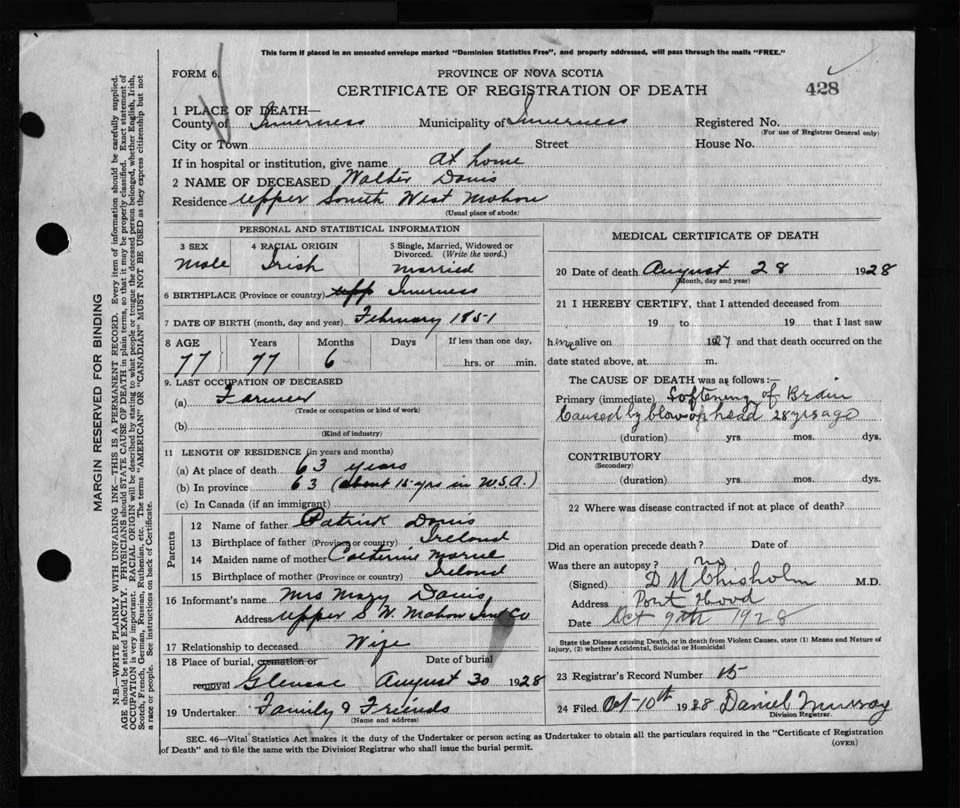 This form if placed in an unsealed envelope marked "Dominion Statistics Free", and properly addressed, will pass through the mails "FREE."
FORM 6.
PROVINCE OF NOVA SCOTIA
CERTIFICATE OF REGISTRATION OF DEATH
428
1 PLACE OF DEATH—
County of Inverness Municipality of Inverness Registered No.
(For use of Registrar General only)
City or Town Street House No.
If in hospital or institution, give name At home
2 NAME OF DECEASED Walter Davis
Residence Upper South West Mabou
(Usual place of abode)
PERSONAL AND STATISTICAL INFORMATION
3 SEX 4 RACIAL ORIGIN 5 Single, Married, Widowed or Divorced. (Write the word.)
Male Irish Married
6 BIRTHPLACE (Province or country) upp Inverness
7 DATE OF BIRTH (month, day and year) February 1851
8 AGE Years Months Days If less than one day,
77 77 6 hrs. or min.
9. LAST OCCUPATION OF DECEASED
(a) Farmer
(Trade or occupation or kind of work)
(b)
(Kind of industry)
11 LENGTH OF RESIDENCE (in years and months)
(a) At place of death 63 years
(b) In province 63 (about 15 yrs in U.S.A.)
(c) In Canada (if an immigrant)
Parents
12 Name of father Patrick Davis
13 Birthplace of father (Province or country) Ireland
14 Maiden name of mother Catherine
15 Birthplace of mother (Province or country) Ireland
16 Informant's name Mrs Mary Davis
Address Upper S. W. Mabou Inv Co
17 Relationship to deceased Wife
18 Place of burial, cremation or removal Date of burial
Glencoe August 30 1928
19 Undertaker Family & Friends
(Name and address)
MEDICAL CERTIFICATE OF DEATH
20 Date of death August 28 1928
(Month, day and year)
21 I HEREBY CERTIFY, that I attended deceased from
19 to 19 that I last saw
him alive on 1927 and that death occurred on the
date stated above, at m.
The CAUSE OF DEATH was as follows:—
Primary (immediate) Softening of Brain
Caused by blow on head 28 yrs ago
(duration) yrs. mos. dys.
CONTRIBUTORY
(Secondary)
(duration) yrs. mos. dys.
22 Where was disease contracted if not at place of death?
Did an operation precede death? Date of
Was there an autopsy? no
(Signed) D M Chisholm M.D.
Address Port Hood
Date Oct 9th 1928
State the Disease causing Death, or in death from Violent Causes, state (1) Means and Nature of
Injury, (2) whether Accidental, Suicidal or Homicidal
23 Registrar's Record Number 15
24 Filed Oct-10th 1928 Daniel Murray
Division Registrar.
SEC. 46—Vital Statistics Act makes it the duty of the Undertaker or person acting as Undertaker to obtain all the particulars required in the "Certificate of Registration
of Death" and to file the same with the Division Registrar who shall issue the burial permit.
(OVER)
MARGIN RESERVED FOR BINDING
N.B.—WRITE PLAINLY WITH UNFADING INK—THIS IS A PERMANENT RECORD. Every item of information should be carefully supplied.
AGE should be stated EXACTLY. PHYSICIANS should STATE CAUSE OF DEATH in plain terms, so that it may be properly classified. Exact statement of
OCCUPATION is very important. RACIAL ORIGIN will be described by stating to what people or tongue the deceased person belonged, whether English, Irish,
Scotch, French, German, Russian, Ruthenian, etc. The terms "AMERICAN" OR "CANADIAN" MUST NOT BE USED as they express citizenship but not
a race or people. See instructions on back of Certificate.